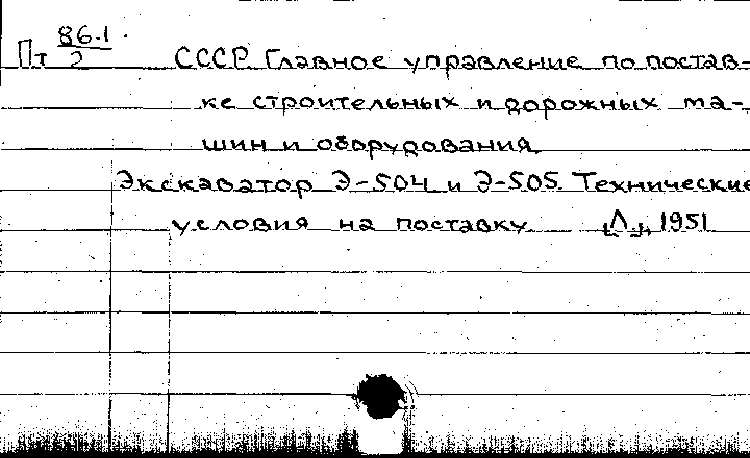 Пт 86.1/2 СССР. Главное управление по постав-
ке строительных и дорожных ма-
шин и оборудования
Экскаватор Э-504 и Э-505. Технические
условия на поставку [Л.], 1951